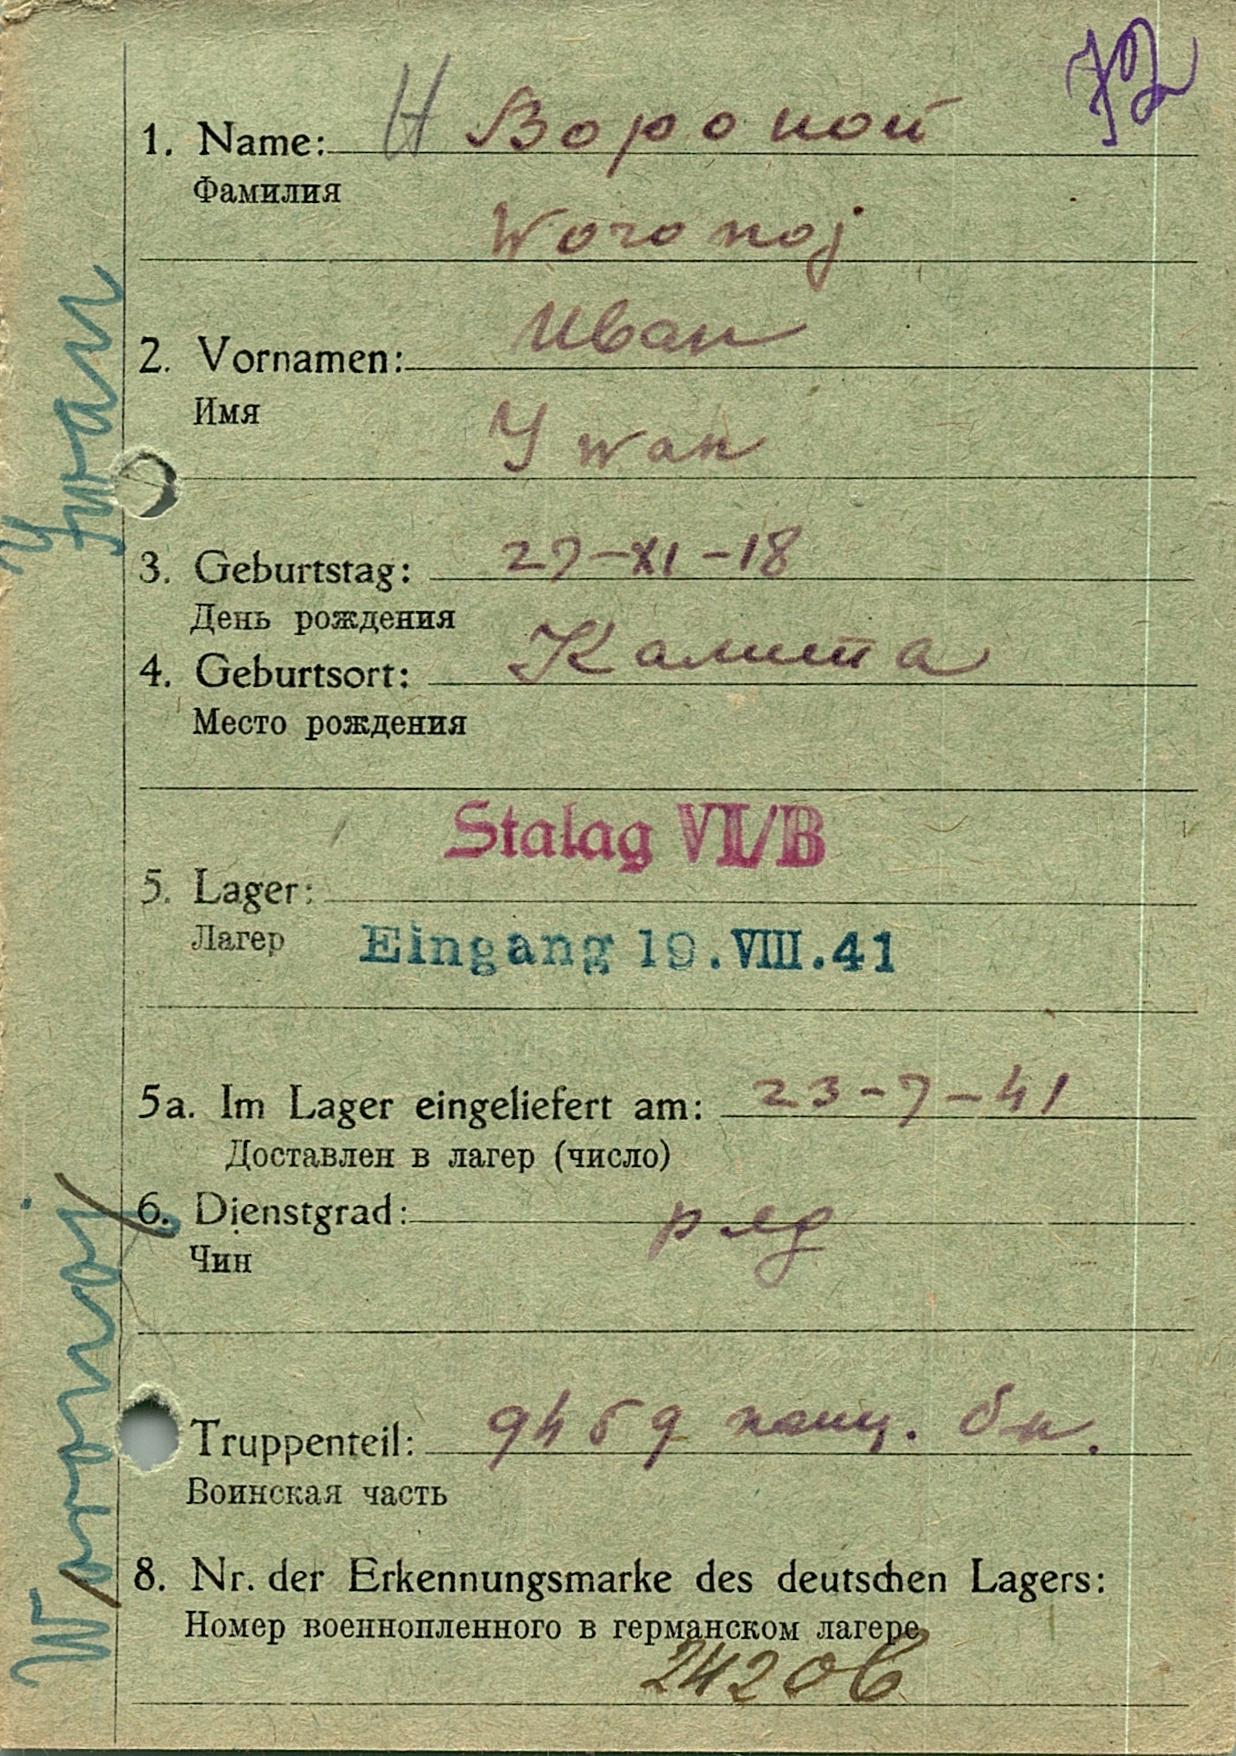 1. Name: Н Вороной
Фамилия
Woronoj
Иван
2. Vornamen:
Имя
Ywan
3. Geburtstag: 27-XI-18
День рождения
4. Geburtsort: Калита
Место рождения
Stalag VI/B
5. Lager:
Лагер
Eingang 19.VIII.41
5a. Im Lager eingeliefert am: 23-7-41
Доставлен в лагер (число)
6. Dienstgrad: ряд
Чин
Truppenteil:
Воинская часть
8. Nr. der Erkennungsmarke des deutschen Lagers:
Номер военнопленного в германском лагере
Woronoj Ywan